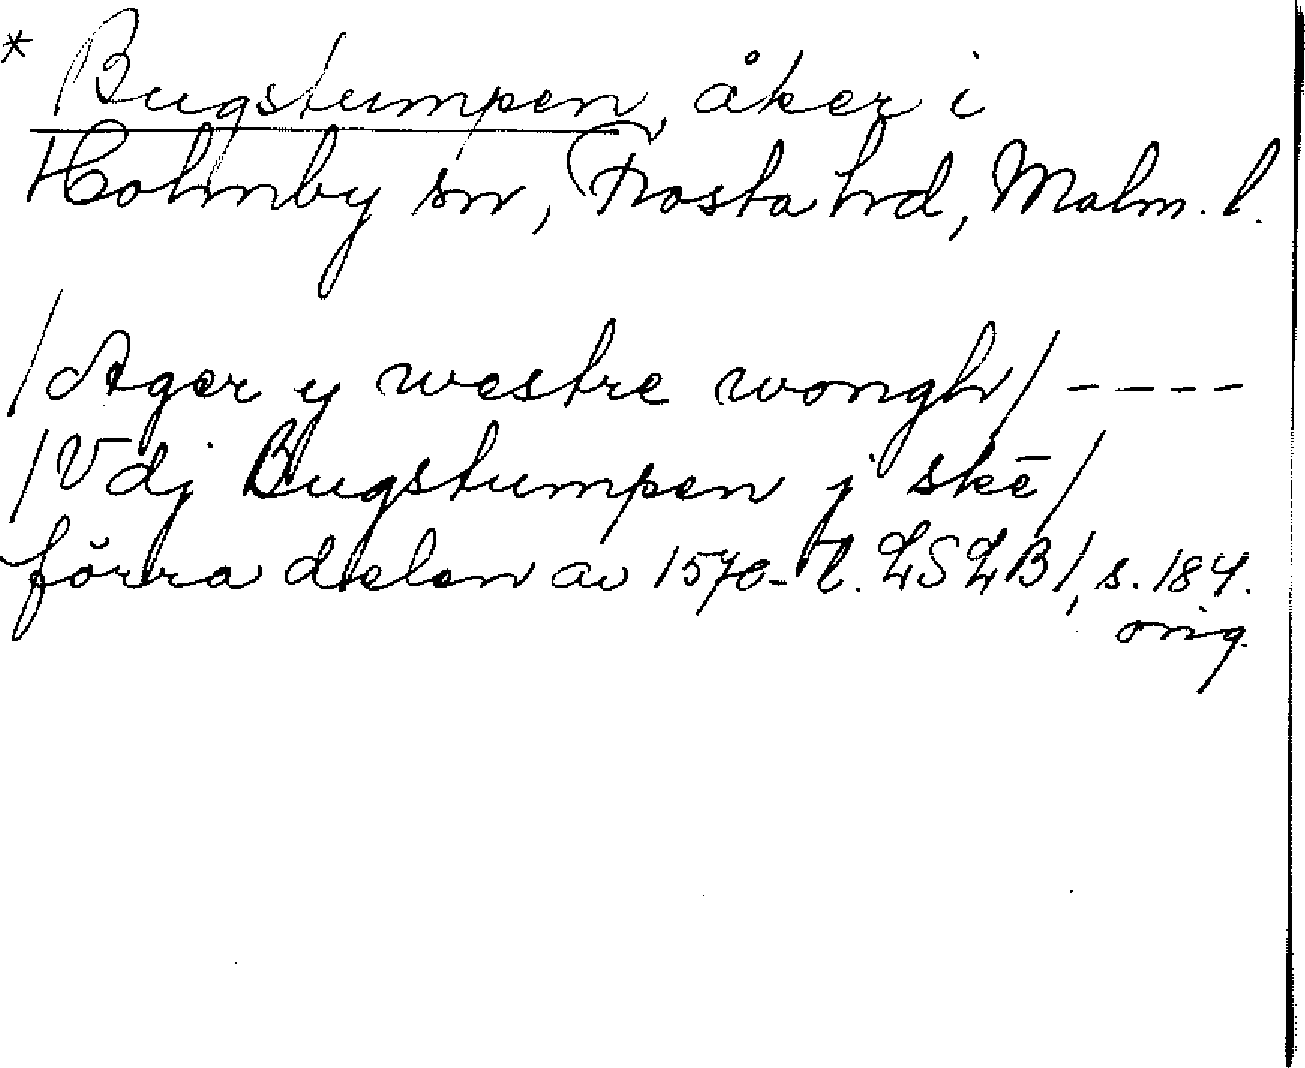 * Bugstumpen, åker i
Holmby sn, Frosta hd, Malm. l.
/Ager y westre wongh/ ----
/Vdj Bugstumpen j skē/
förra delen av 1570-t. LSLB1, s. 184.
orig.